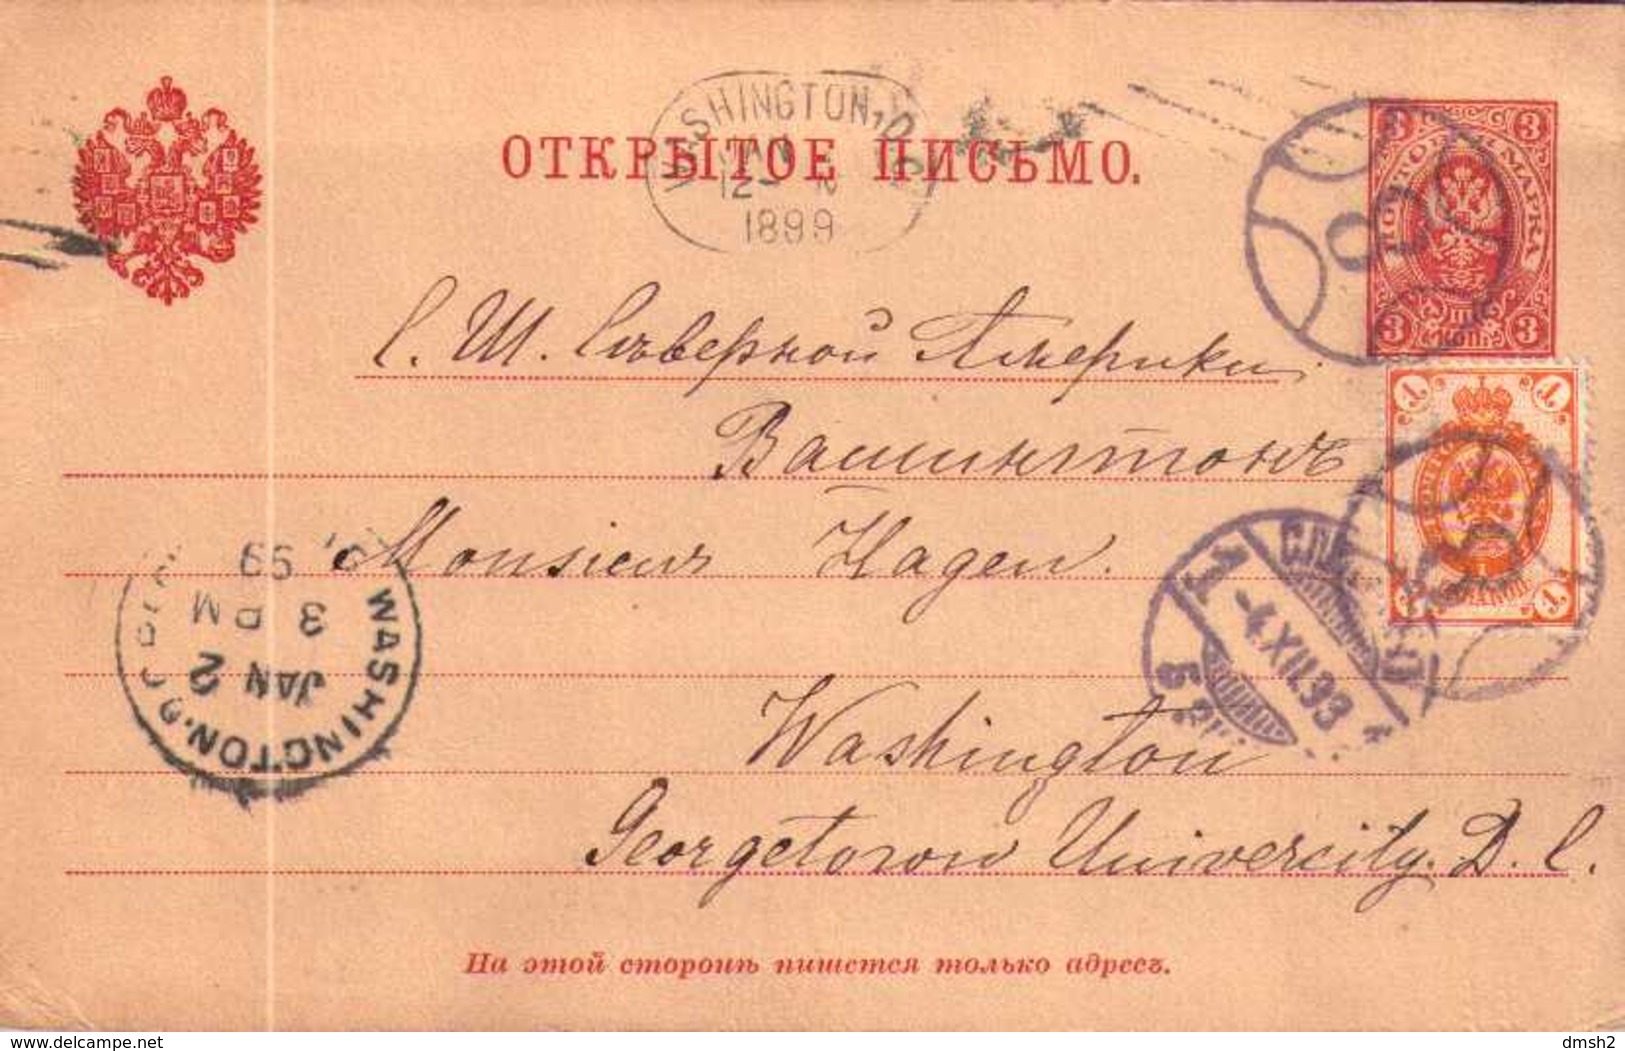 WASHINGTON, D.C.
JAN 2
12-
1899
ОТКРЫТОЕ ПИСЬМО.
3 3
ПОЧТОВАЯ МАРКА
3 3
С. Ш. Сѣверной Америки
1 1
Вашингтонъ
Monsieur Hagen.
1 1
WASHINGTON, D.C.
JAN 2
3 PM
99
-4.XII.93
Washington
Georgetown Univercity. D. C.
На этой сторонѣ пишется только адресъ.
delcampe.net
dmsh2